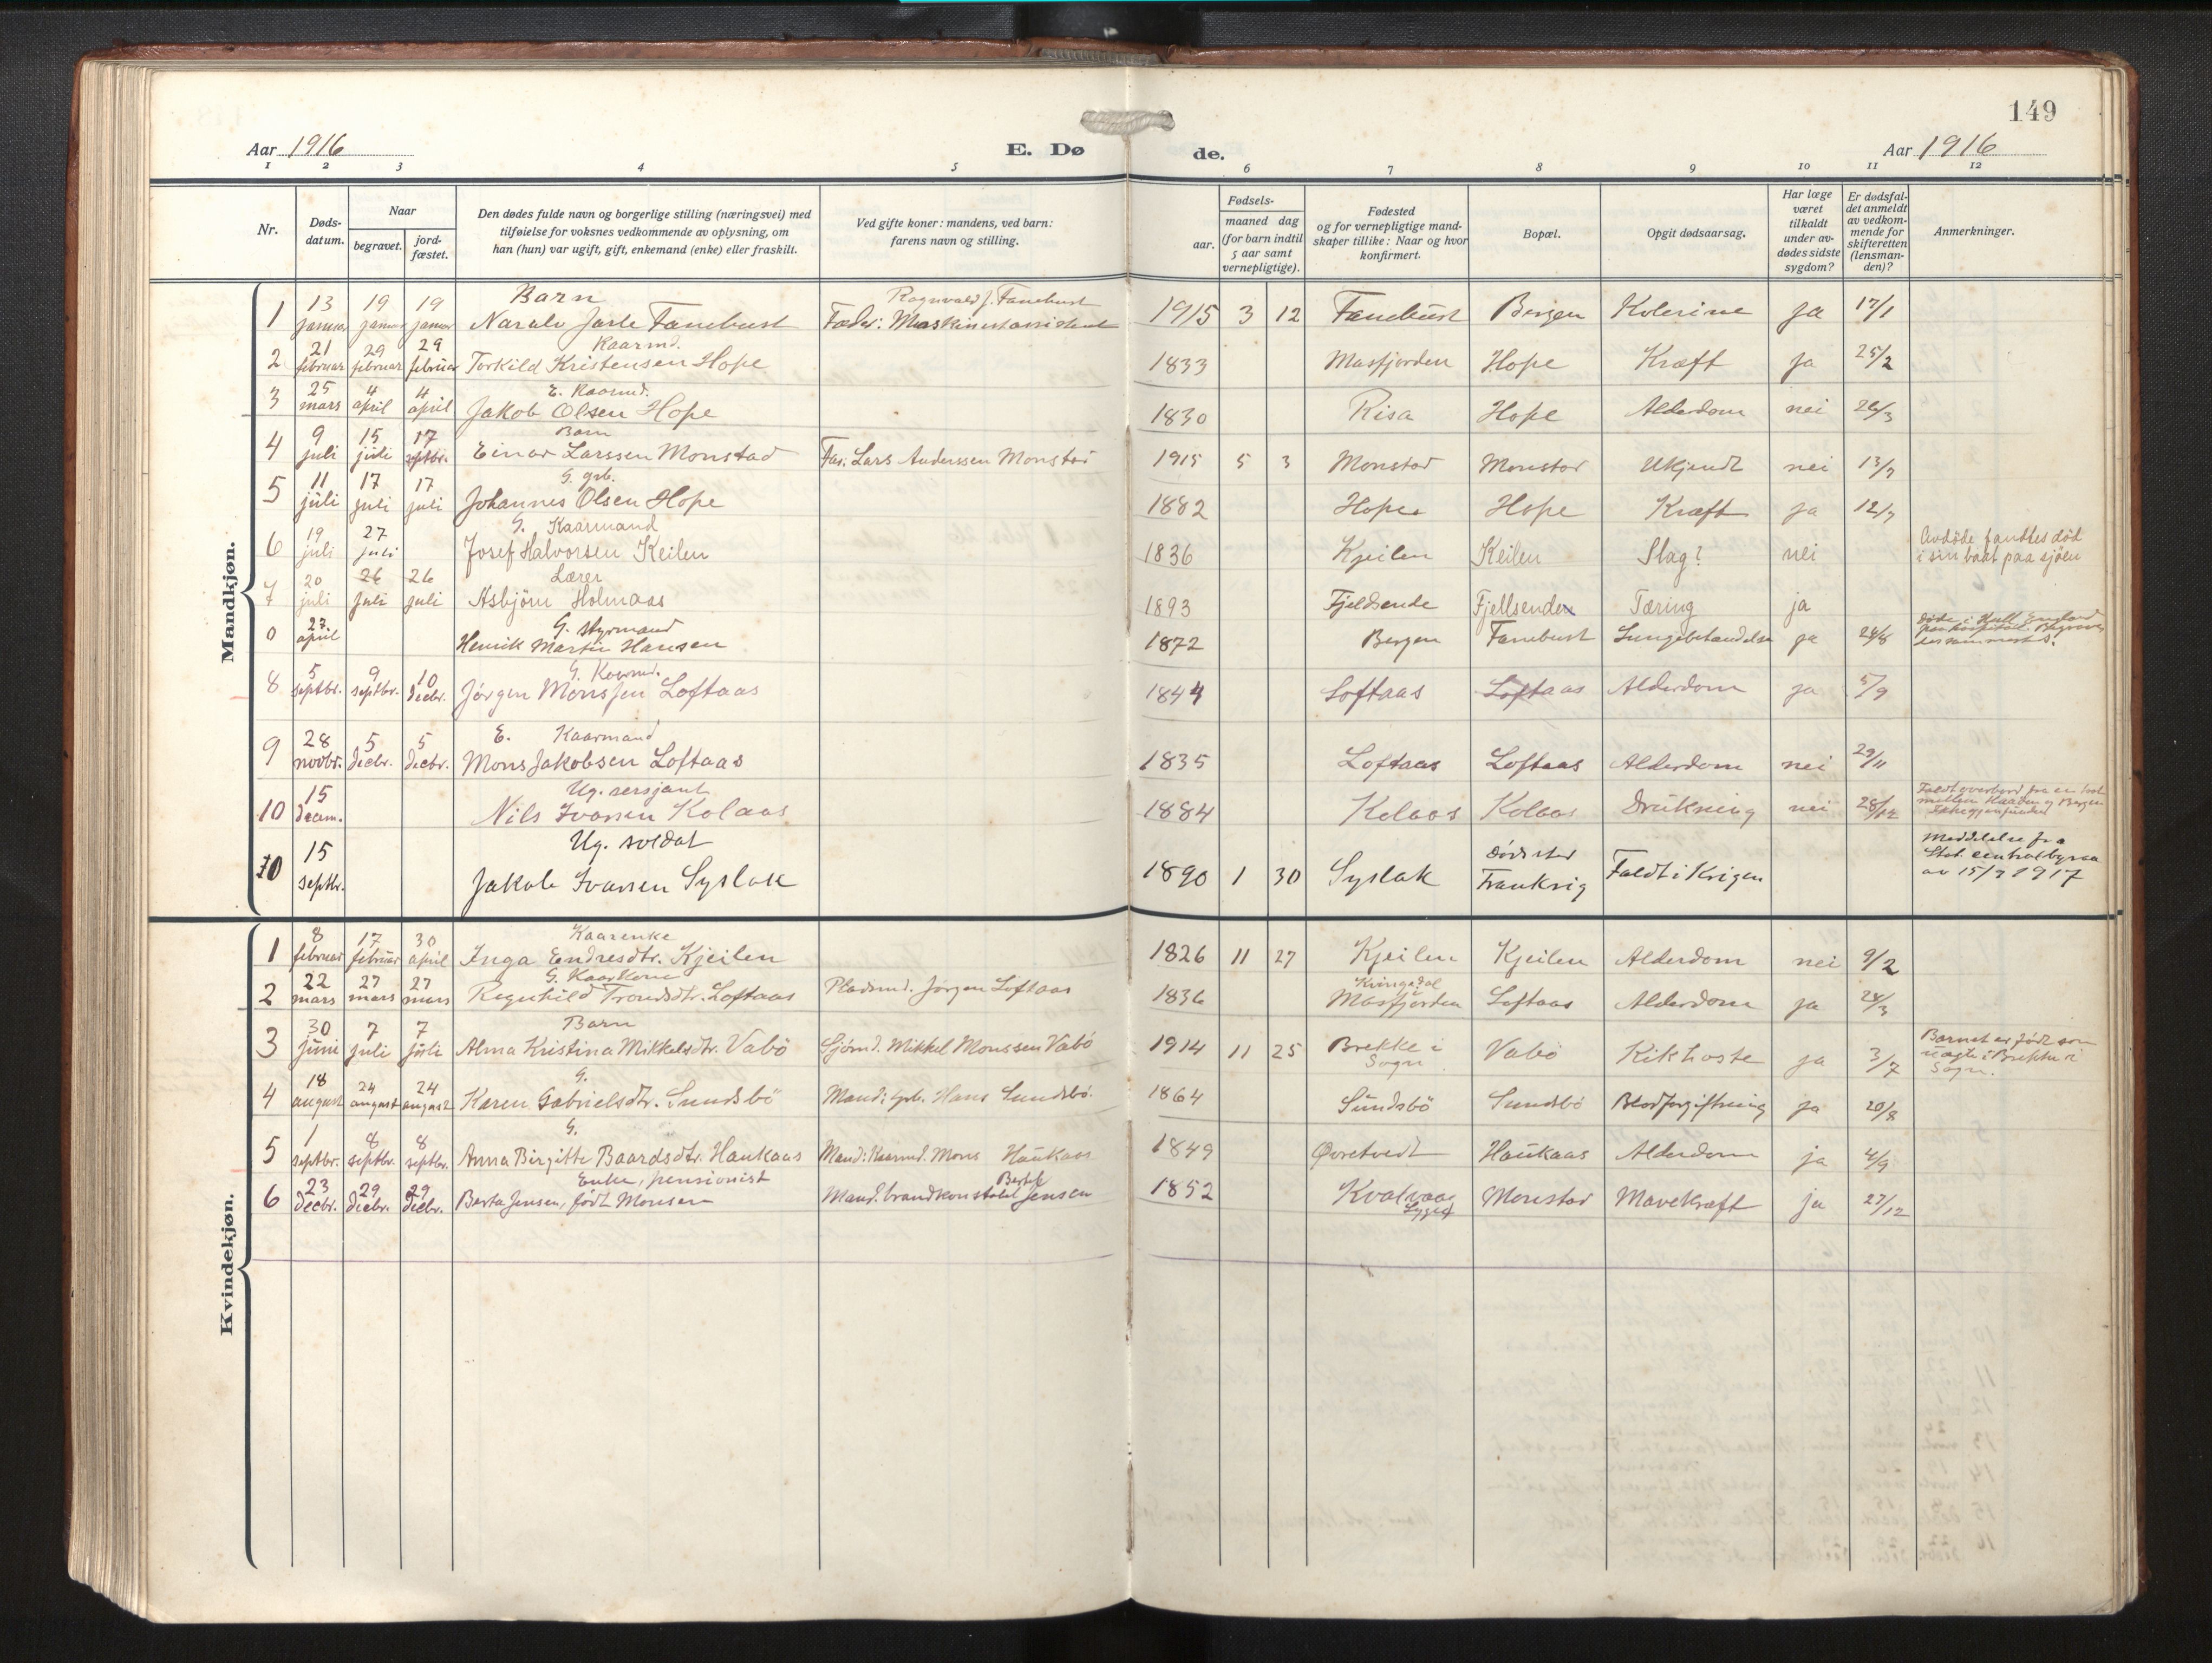 149
Aar 1916
E. Dø
de.
Aar 1916
1 2 3 4 5 6 7 8 9 10 11 12
Nr.
Døds-
datum.
Naar
begravet.
jord-
fæstet.
Den dødes fulde navn og borgerlige stilling (næringsvei) med
tilføielse for voksnes vedkommende av oplysning, om
han (hun) var ugift, gift, enkemand (enke) eller fraskilt.
Ved gifte koner: mandens, ved barn:
farens navn og stilling.
Fødsels-
aar.
maaned dag
(for barn indtil
5 aar samt
vernepligtige).
Fødested
og for vernepligtige mand-
skaper tillike: Naar og hvor
konfirmert.
Bopæl.
Opgit dødsaarsag.
Har læge
været
tilkaldt
under av-
dødes sidste
sygdom?
Er dødsfal-
det anmeldt
av vedkom-
mende for
skifteretten
(lensman-
den)?
Anmerkninger.
Mandkjøn.
13 19 19 Barn Ragnvald J. Fanebust
1 januar januar januar Jarle Fanebust Fader: Maskinistassistent 1915 3 12 Fanebust Bergen Kolerine ja 17/1
21 29 29 Kaarmd.
2 februar februar februar Torkild Kristensen Hope 1833 Masfjorden Hope Kræft ja 25/2
25 4 4 E. Kaarmd.
3 mars april april Jakob Olsen Hope 1830 Risa Hope Alderdom nei 26/3
9 15 17 Barn
4 juli juli septbr. Einar Larssen Monstad Far: Lars Anderssen Monstad 1915 5 3 Monstad Monstad Ukjendt nei 13/7
11 17 17 G. grb.
5 juli juli juli Johannes Olsen Hope 1882 Hope Hope Kræft ja 12/7
19 27 G. Kaarmand
6 juli juli Josef Halvorsen Keilen 1836 Kjeilen Keilen Slag? nei Avdøde fandtes død
i sin baat paa sjøen
20 26 26 Lærer
7 juli juli juli Asbjørn Holmaas 1893 Fjeldsende Fjellsende Tæring ja
27. G. styrmand
0 april Henrik Martin Hansen 1872 Bergen Fanebust ja 24/8 Døde i Hull England
5 9 10 G. Kaarmd.
8 septbr. septbr. decbr. Jørgen Monssen Loftaas 1844 Loftaas Loftaas Alderdom ja 5/9
28 5 5 E. Kaarmand
9 novbr. decbr. decbr. Mons Jakobsen Loftaas 1835 Loftaas Loftaas Alderdom nei 29/11
15 Ug. sersjant
10 decem. Nils Ivarsen Kolaas 1884 Kolaas Kolaas Drukning nei 28/12 Faldt overbord fra en
mellem og Bergen
Ikke gjenfundet
15 Ug. soldat
10 septbr. Jakob Ivarsen Syslak 1890 1 30 Syslak Dødssted
Frankrig Faldt i Krigen Meddelelse fra
Stat. centralbyraa
av 15/7 1917
Kvindekjøn.
8 17 30 Kaarenke
1 februar februar april Inga Endresdtr. Kjeilen 1826 11 27 Kjeilen Kjeilen Alderdom nei 9/2
22 27 27 G. Kaarkone
2 mars mars mars Ragnhild Trondsdtr. Loftaas Pladsmd. Jørgen Loftaas 1836 Kvingedal
Masfjorden Loftaas Alderdom ja 24/3
30 7 7 Barn
3 juni juli juli Alma Kristina Mikkelsdtr. Vabö Sjömd. Mikkel Monssen Vabö 1914 11 25 Brekke i
Sogn. Vabö Kikhoste ja 3/7 Barnet er født som
uægte i Brekke i
Sogn.
18 24 24 G.
4 august august august Karen Gabrielsdtr. Sundsbö Mand: grb. Hans Sundsbö. 1864 Sundsbö Sundsbö Blodforgiftning ja 20/8
1 8 8 G.
5 septbr. septbr. septbr. Anna Birgitte Baardsdtr. Haukaas Mand: Kaarmd. Mons Haukaas 1849 Øvretvedt Haukaas Alderdom ja 4/9
23 29 29 Enke, pensionist
6 decbr. decbr. decbr. Berta Jensen, født Monsen Mand: brandkonstabel Jensen 1852 Kvalvaag
Monstad Mavekræft ja 27/12